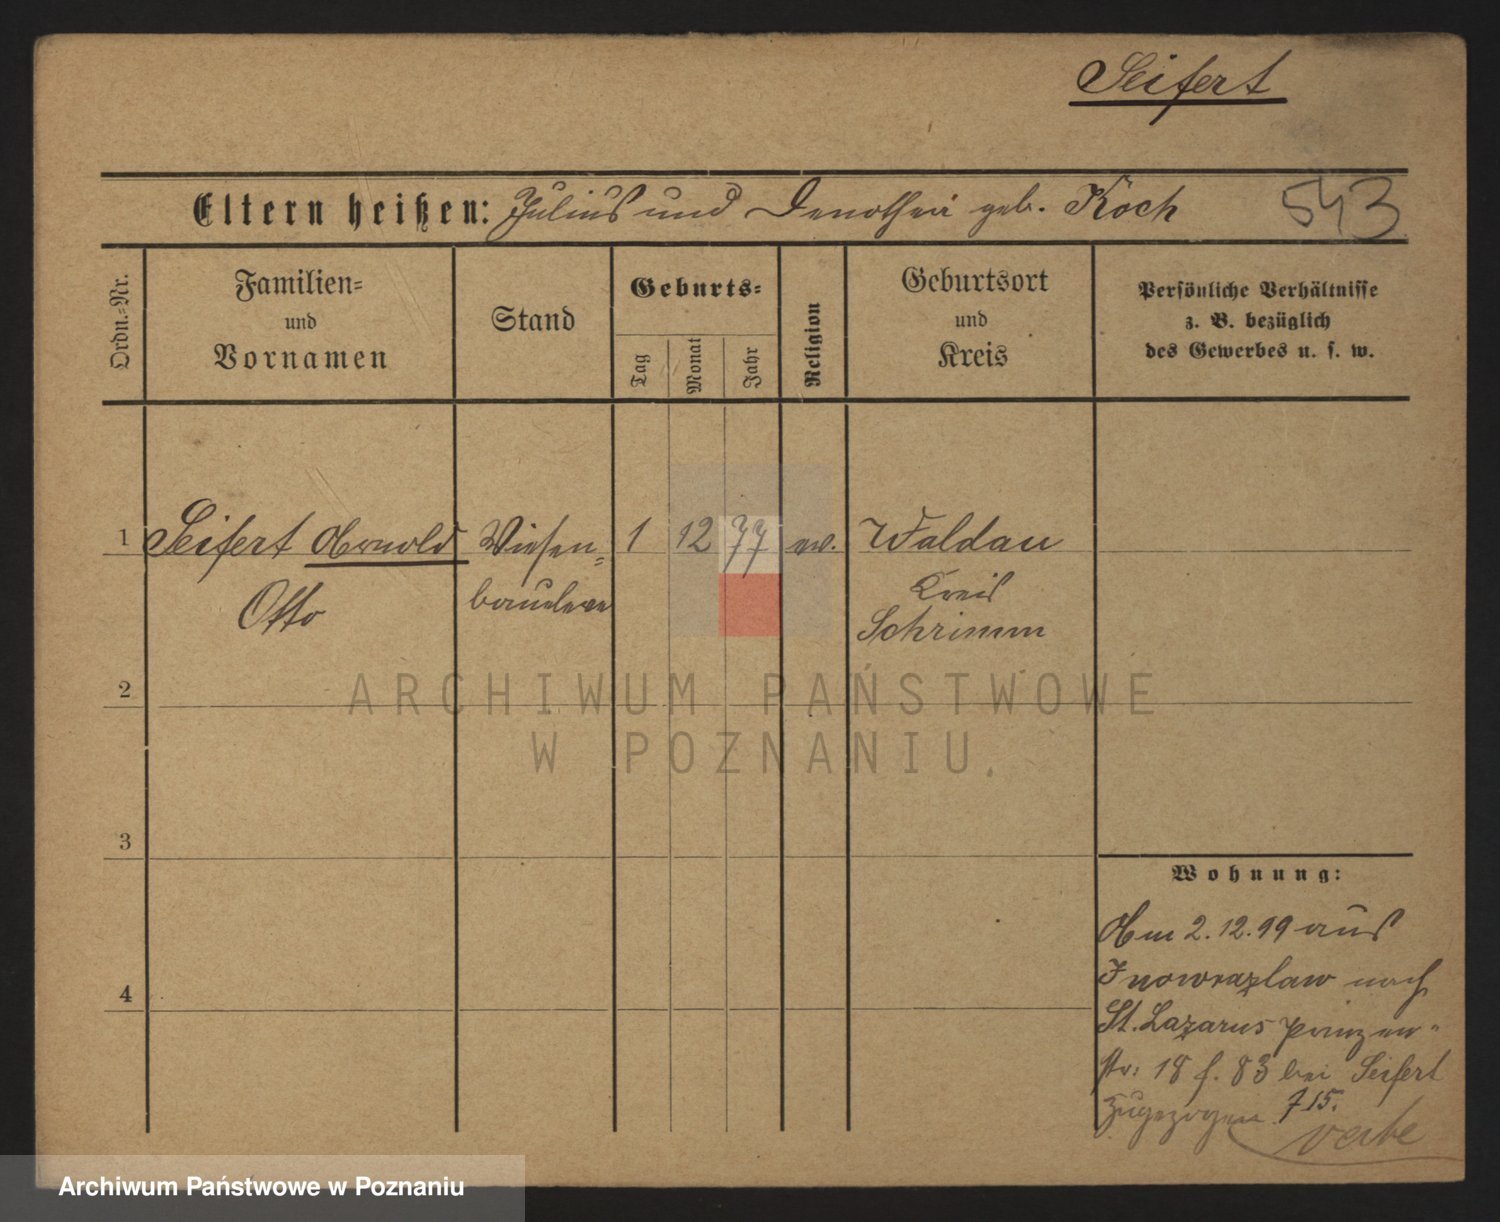 Seifert
Eltern heißen: Julius und Dorothea geb. Koch 543
Ordn.-Nr.
Familien-
und
Vornamen
Stand
Geburts-
Tag
Monat
Jahr
Religion
Geburtsort
und
Kreis
Persönliche Verhältnisse
z. B. bezüglich
des Gewerbes u. s. w.
1 Seifert Arnold Wiesen- 1 12 77 ev. Waldau
Otto Kreis
Schrimm
2
ARCHIWUM PAŃSTWOWE
W POZNANIU
3
Wohnung:
Am 2.12.99 aus
Inowrazlaw nach
4
St. Lazarus Prinzen-
str: 18 f. 83 bei Seifert
zugezogen 715.
Archiwum Państwowe w Poznaniu